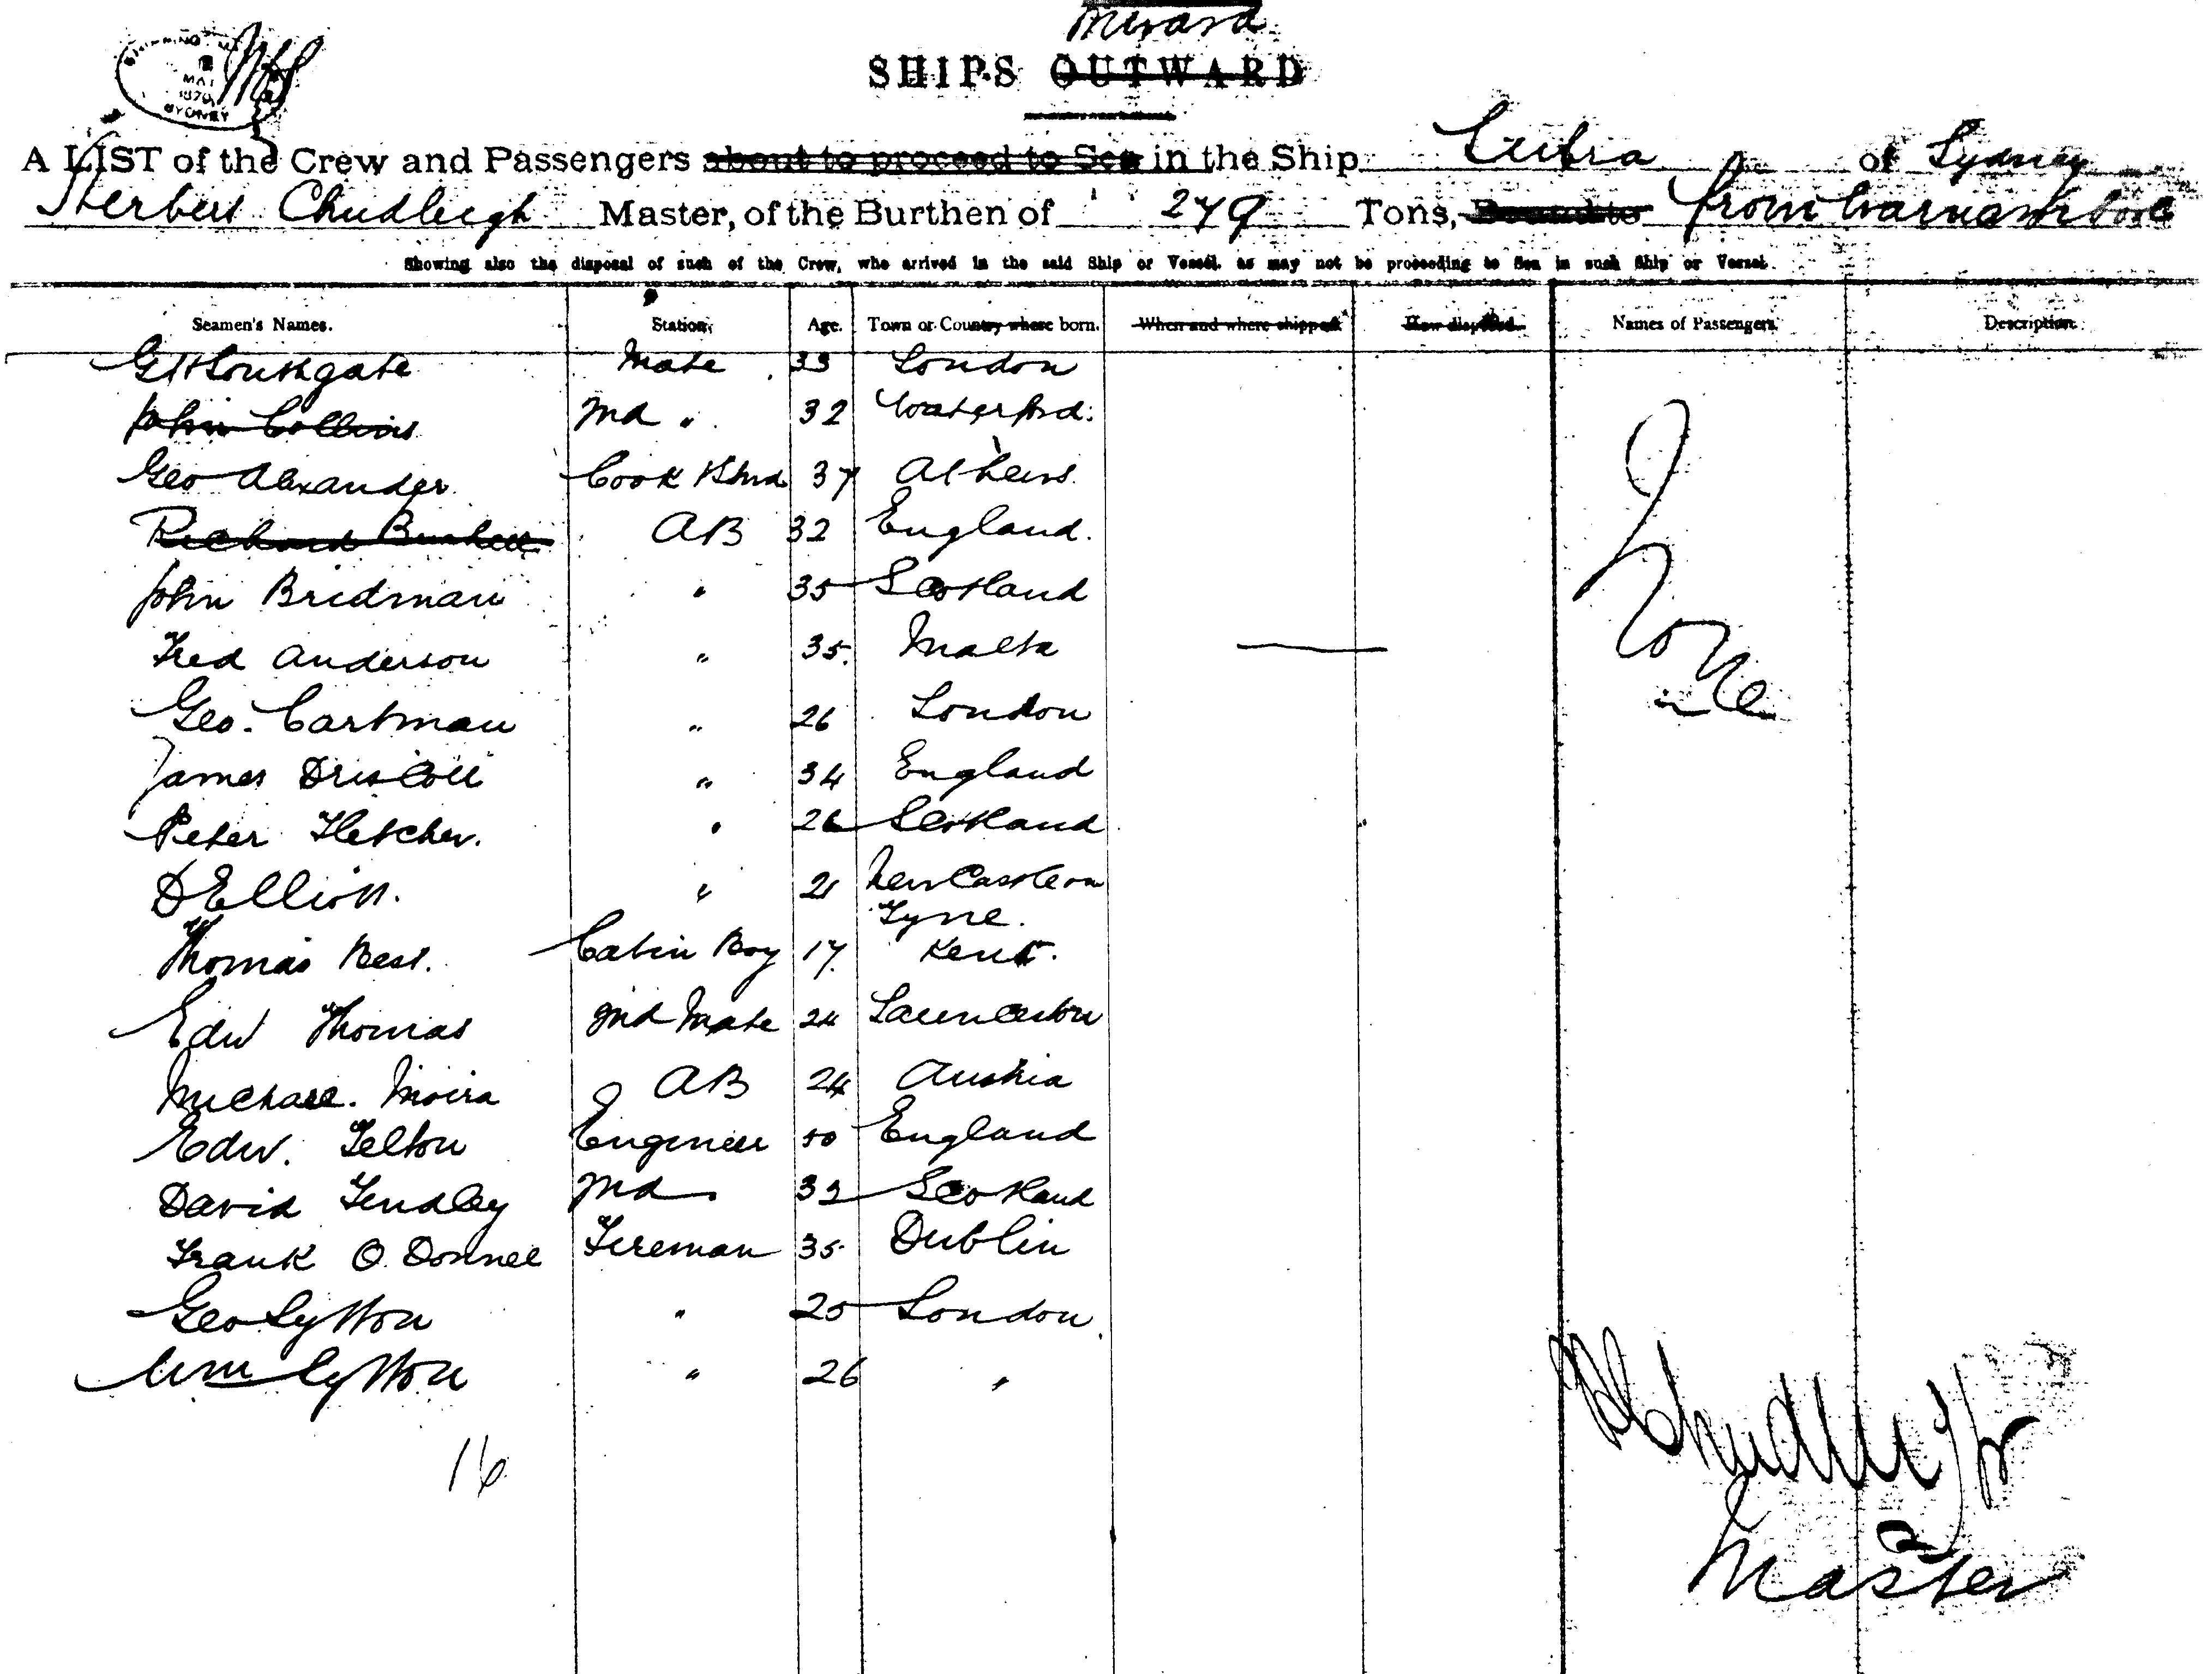 Inward
SHIPS OUTWARD
SHIPPING MA
MAY
1879
SYDNEY
A LIST of the Crew and Passengers about to proceed to Sea in the Ship of Sydney
Herbert Chudleigh Master, of the Burthen of 279 Tons, Bound to from Warnambool
Showing also the disposal of such of the Crew, who arrived in the said Ship or Vessel, as may not be proceeding to Sea in such Ship or Vessel.
Seamen's Names. Station. Age. Town or Country where born. When and where shipped How disposed. Names of Passengers. Description.
Mate 33 London
John Collins 2nd " 32 Waterford.
Geo Alexander Cook & Stwd 37 Athens.
Richard AB 32 England.
John Bridman " 35 Scotland
Fred Anderson " 35. Malta
Geo. Cartman " 26 London
James Driscoll " 34 England
Peter Fletcher. " 26 Scotland
D Elliott. " 21 New Castle on
Tyne.
Thomas Best. Cabin Boy 17. Kent.
Edw Thomas 2nd Mate 24 Launceston
Michael. Moira AB 24 Austria
Edw. Felton Engineer 50 England
David Findley 2nd. 32 Scotland
Frank O Donnell Fireman 35 Dublin
Geo Lytton " 25 London
Wm Lytton " 26 "
None
16
H Chudleigh
Master